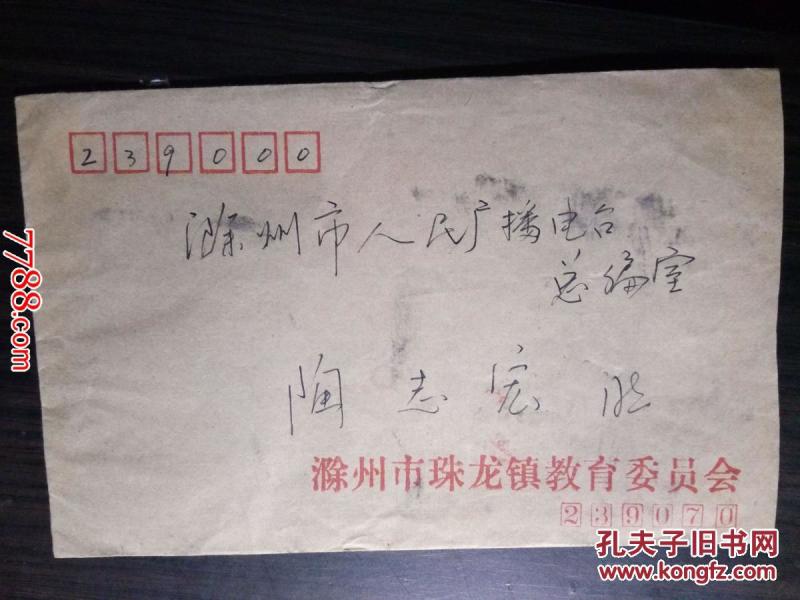 239000
滁州市人民广播电台
总编室
陶志宏
滁州市珠龙镇教育委员会
239070
7788.com
孔夫子旧书网
www.kongfz.com